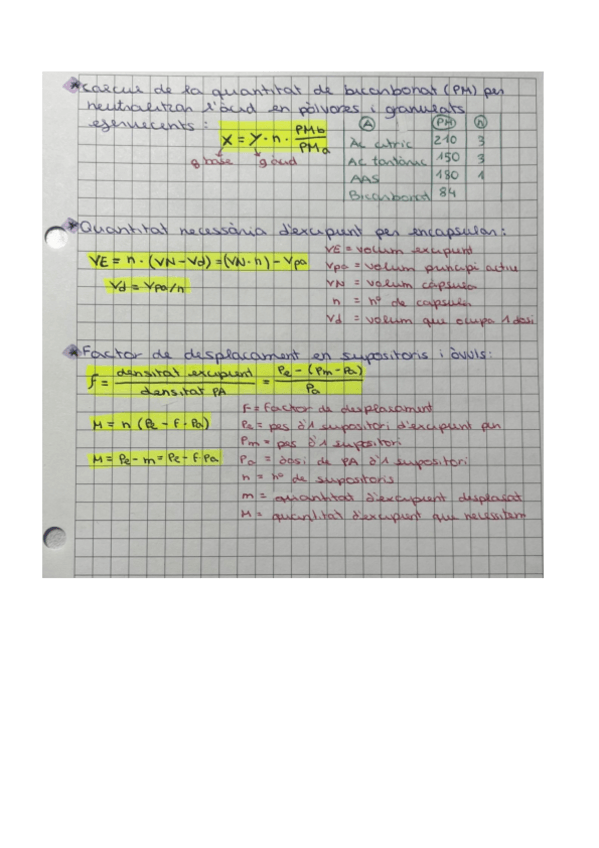 *Càlcul de la quantitat de bicarbonat (PM) per
neutralitzar l'àcid en pólvores i granulats
efervecents:
X = Y · n · PMb / PMa
g base g àcid
A PM n
Ac citric 210 3
Ac tartàric 150 3
AAS 180 1
Bicarbonat 84
*Quantitat necessària d'excipient per encapsular:
VE = n · (VN - Vd) = (VN · n) - Vpa
Vd = Vpa/n
VE = volum excipient
Vpa = volum principi actiu
VN = volum càpsula
n = nº de capsules
Vd = volum que ocupa 1 dosi
*Factor de desplaçament en supositoris i òvuls:
f = densitat excipient / densitat PA = Pe - (Pm - Pa) / Pa
M = n (Pe - F · Pa)
M = Pe - m = Pe - F · Pa
F = Factor de desplaçament
Pe = pes d'1 supositori d'excipient pur
Pm = pes d'1 supositori
Pa = dosi de PA d'1 supositori
n = nº de supositoris
m = quantitat d'excipient desplaçat
M = quantitat d'excipient que necessitem